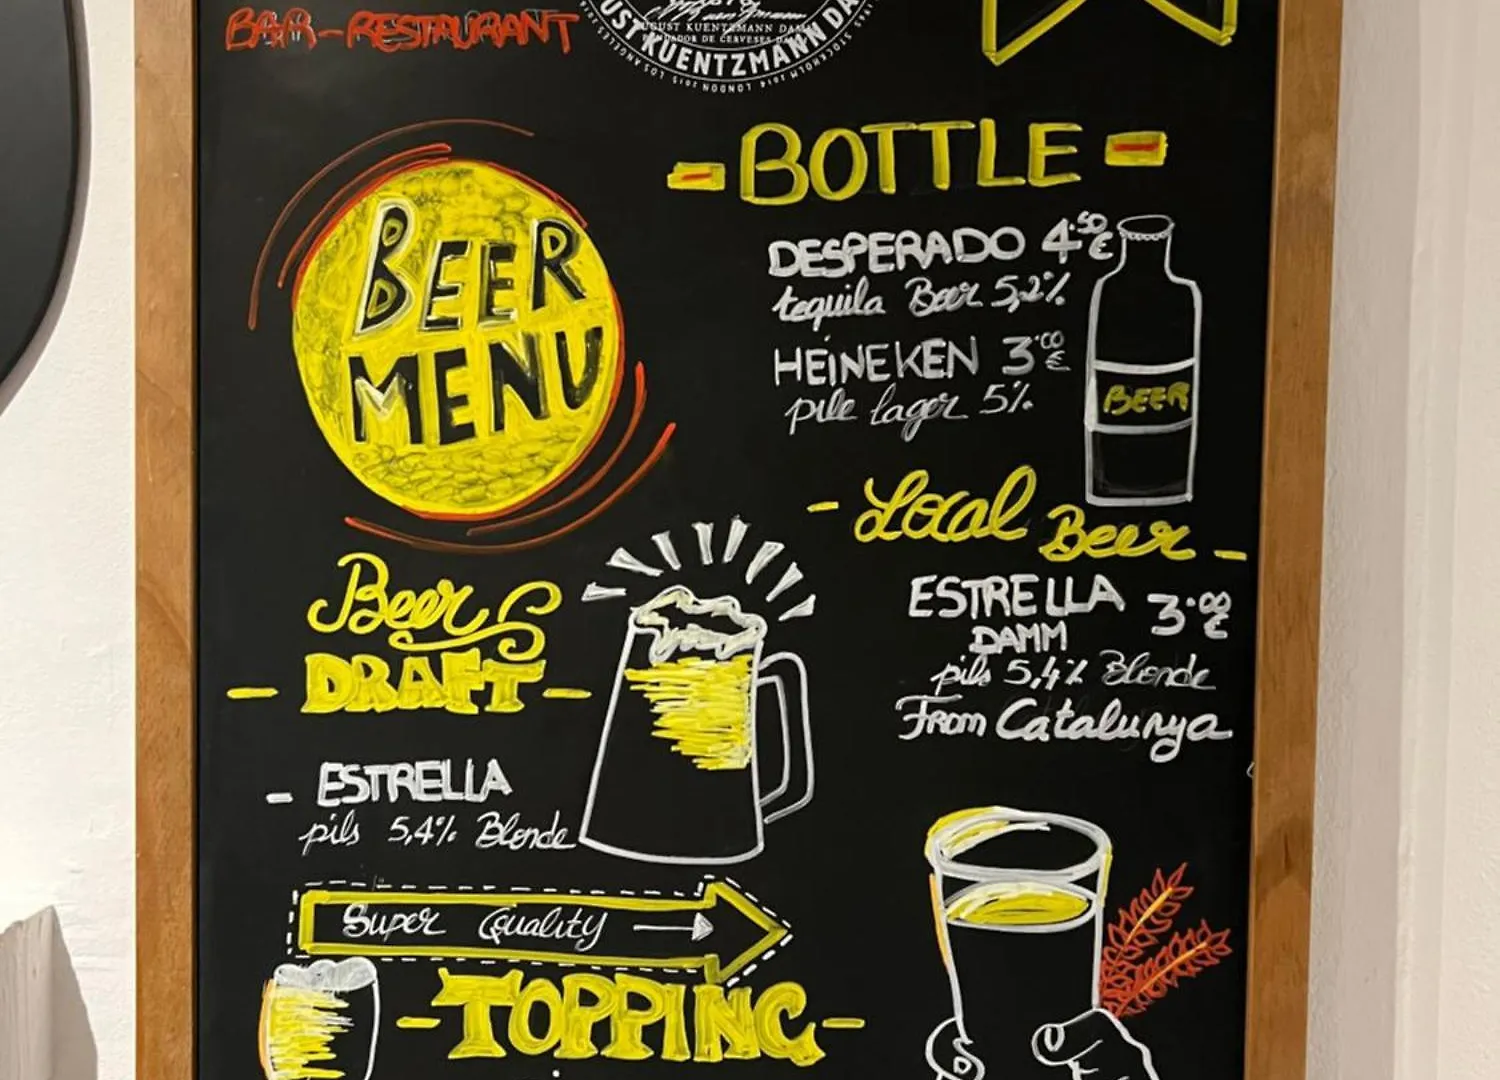 BAR-RESTAURANT
AUGUST KUENTZMANN DAMM
FUNDADOR DE CERVESES DAMM
UST KUENTZMANN DA
LOS ANGELES 2015 LONDON 2014 STOCKHOLM
BEER
MENU
- BOTTLE -
DESPERADO 4.50€
tequila Beer 5,2%
HEINEKEN 3.00€
pile lager 5%
BEER
- Local Beer -
ESTRELLA 3.00€
DAMM
pils 5,4% Blonde
From Catalunya
Beer
- DRAFT -
- ESTRELLA
pils 5,4% Blonde
Super Quality →
- TOPPING -